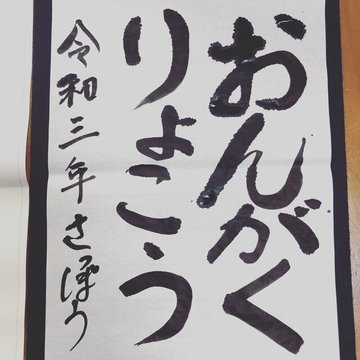 おんがく
りょこう
令和三年さぼう